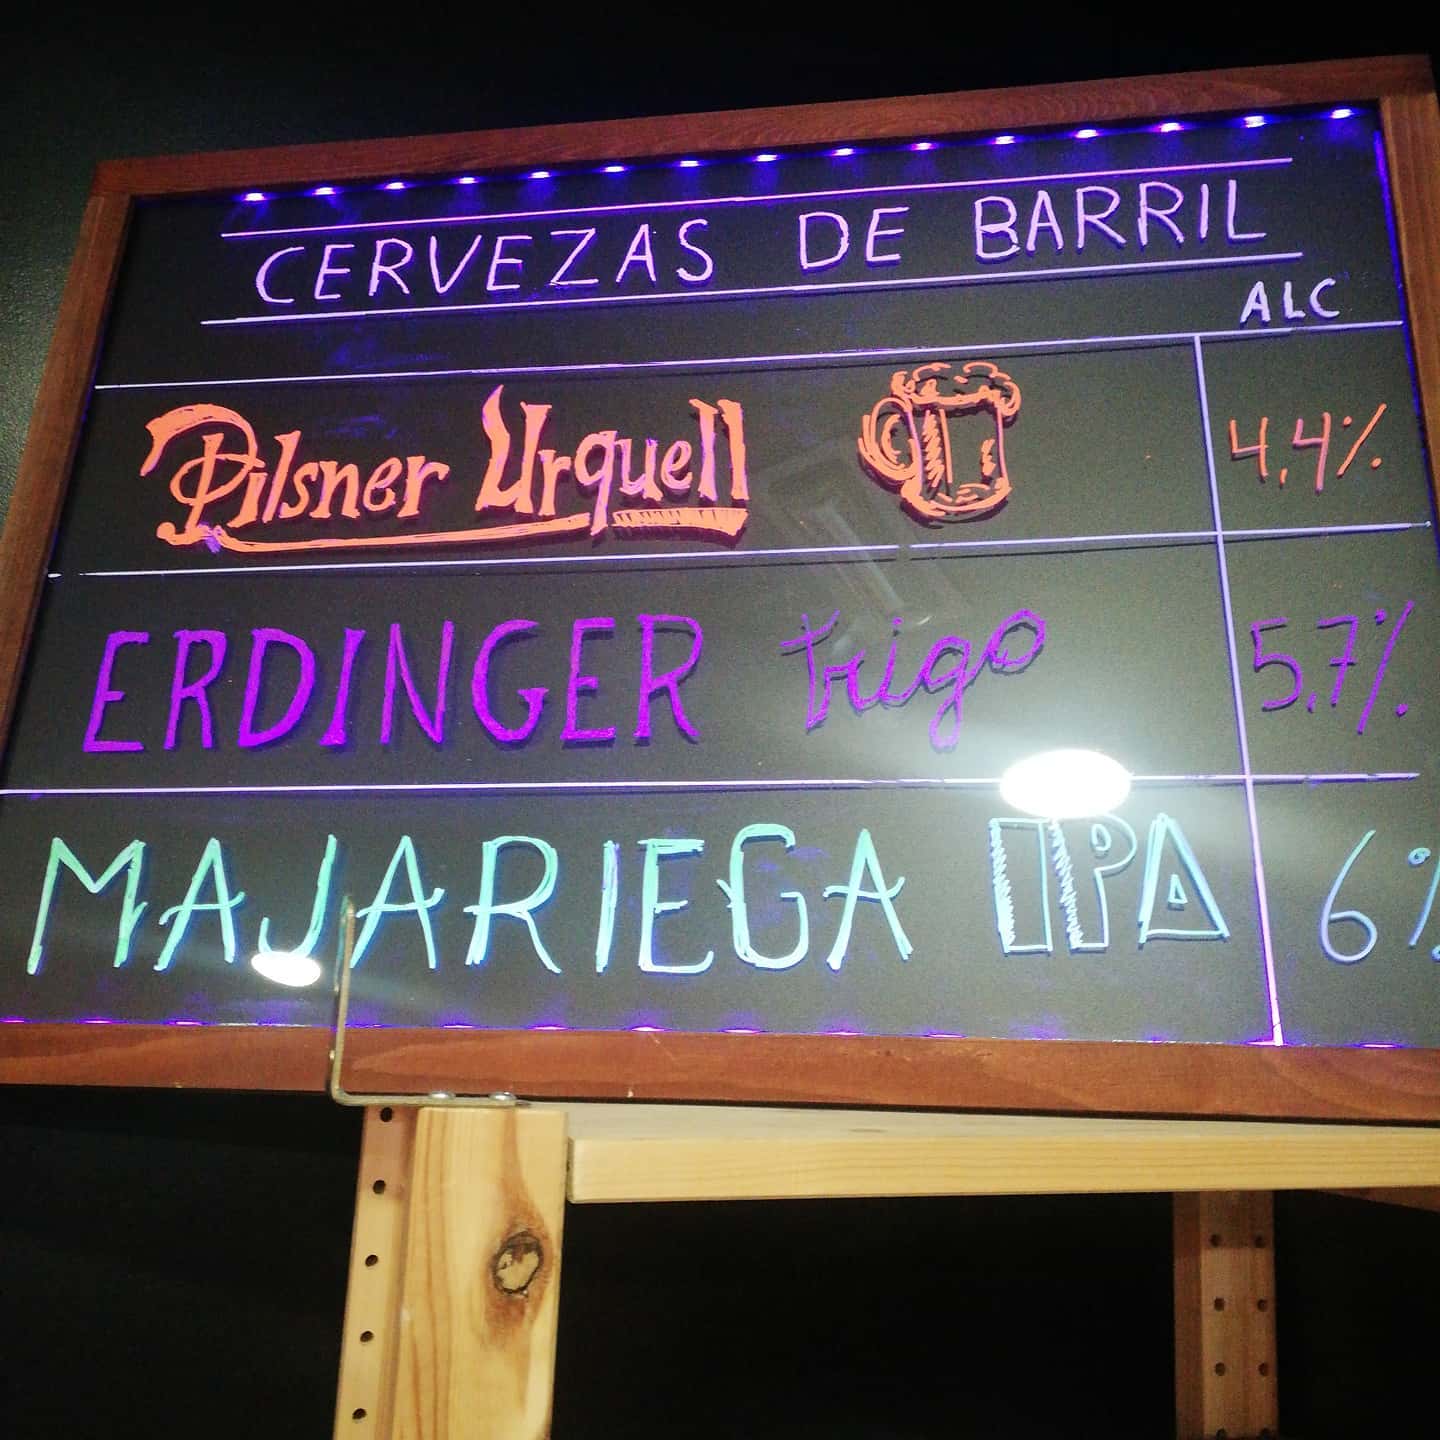 CERVEZAS DE BARRIL
ALC
Pilsner Urquell 4,4%
ERDINGER trigo 5,7%
MAJARIEGA IPA 6%